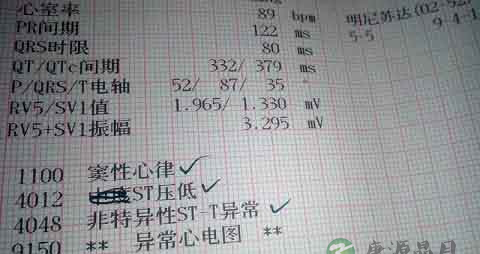 心室率 89 bpm
PR间期 122 ms
QRS时限 80 ms
QT/QTc间期 332/ 379 ms
P/QRS/T电轴 52/ 87/ 35 °
RV5/SV1值 1.965/ 1.330 mV
RV5+SV1振幅 3.295 mV
明尼苏达(02-92)
5-5 9-4-1
1100 窦性心律
4012 ST压低
4048 非特异性ST-T异常
9150 ** 异常心电图 **